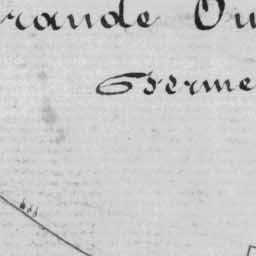 rande Ou
Ferme